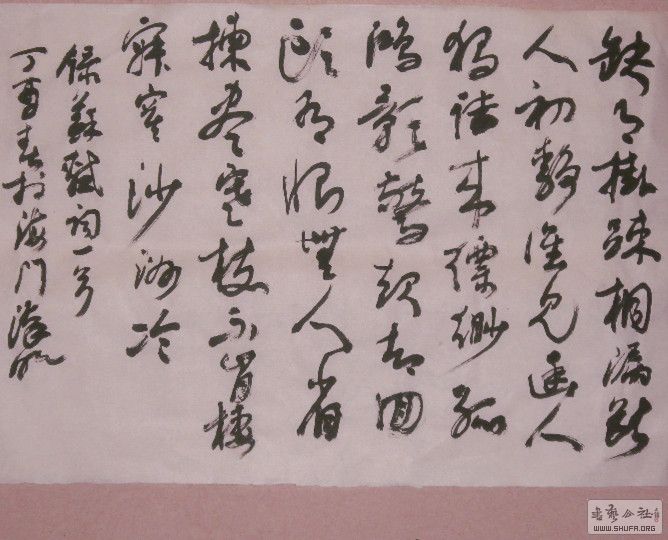 缺月掛疎桐漏斷
人初靜誰見幽人
獨往來縹緲孤
鴻影驚起却回
頭有恨無人省
揀盡寒枝不肯棲
寂寞沙洲冷
錄蘇軾詞一首
丁酉春於海門
書藝公社
WWW.SHUFA.ORG